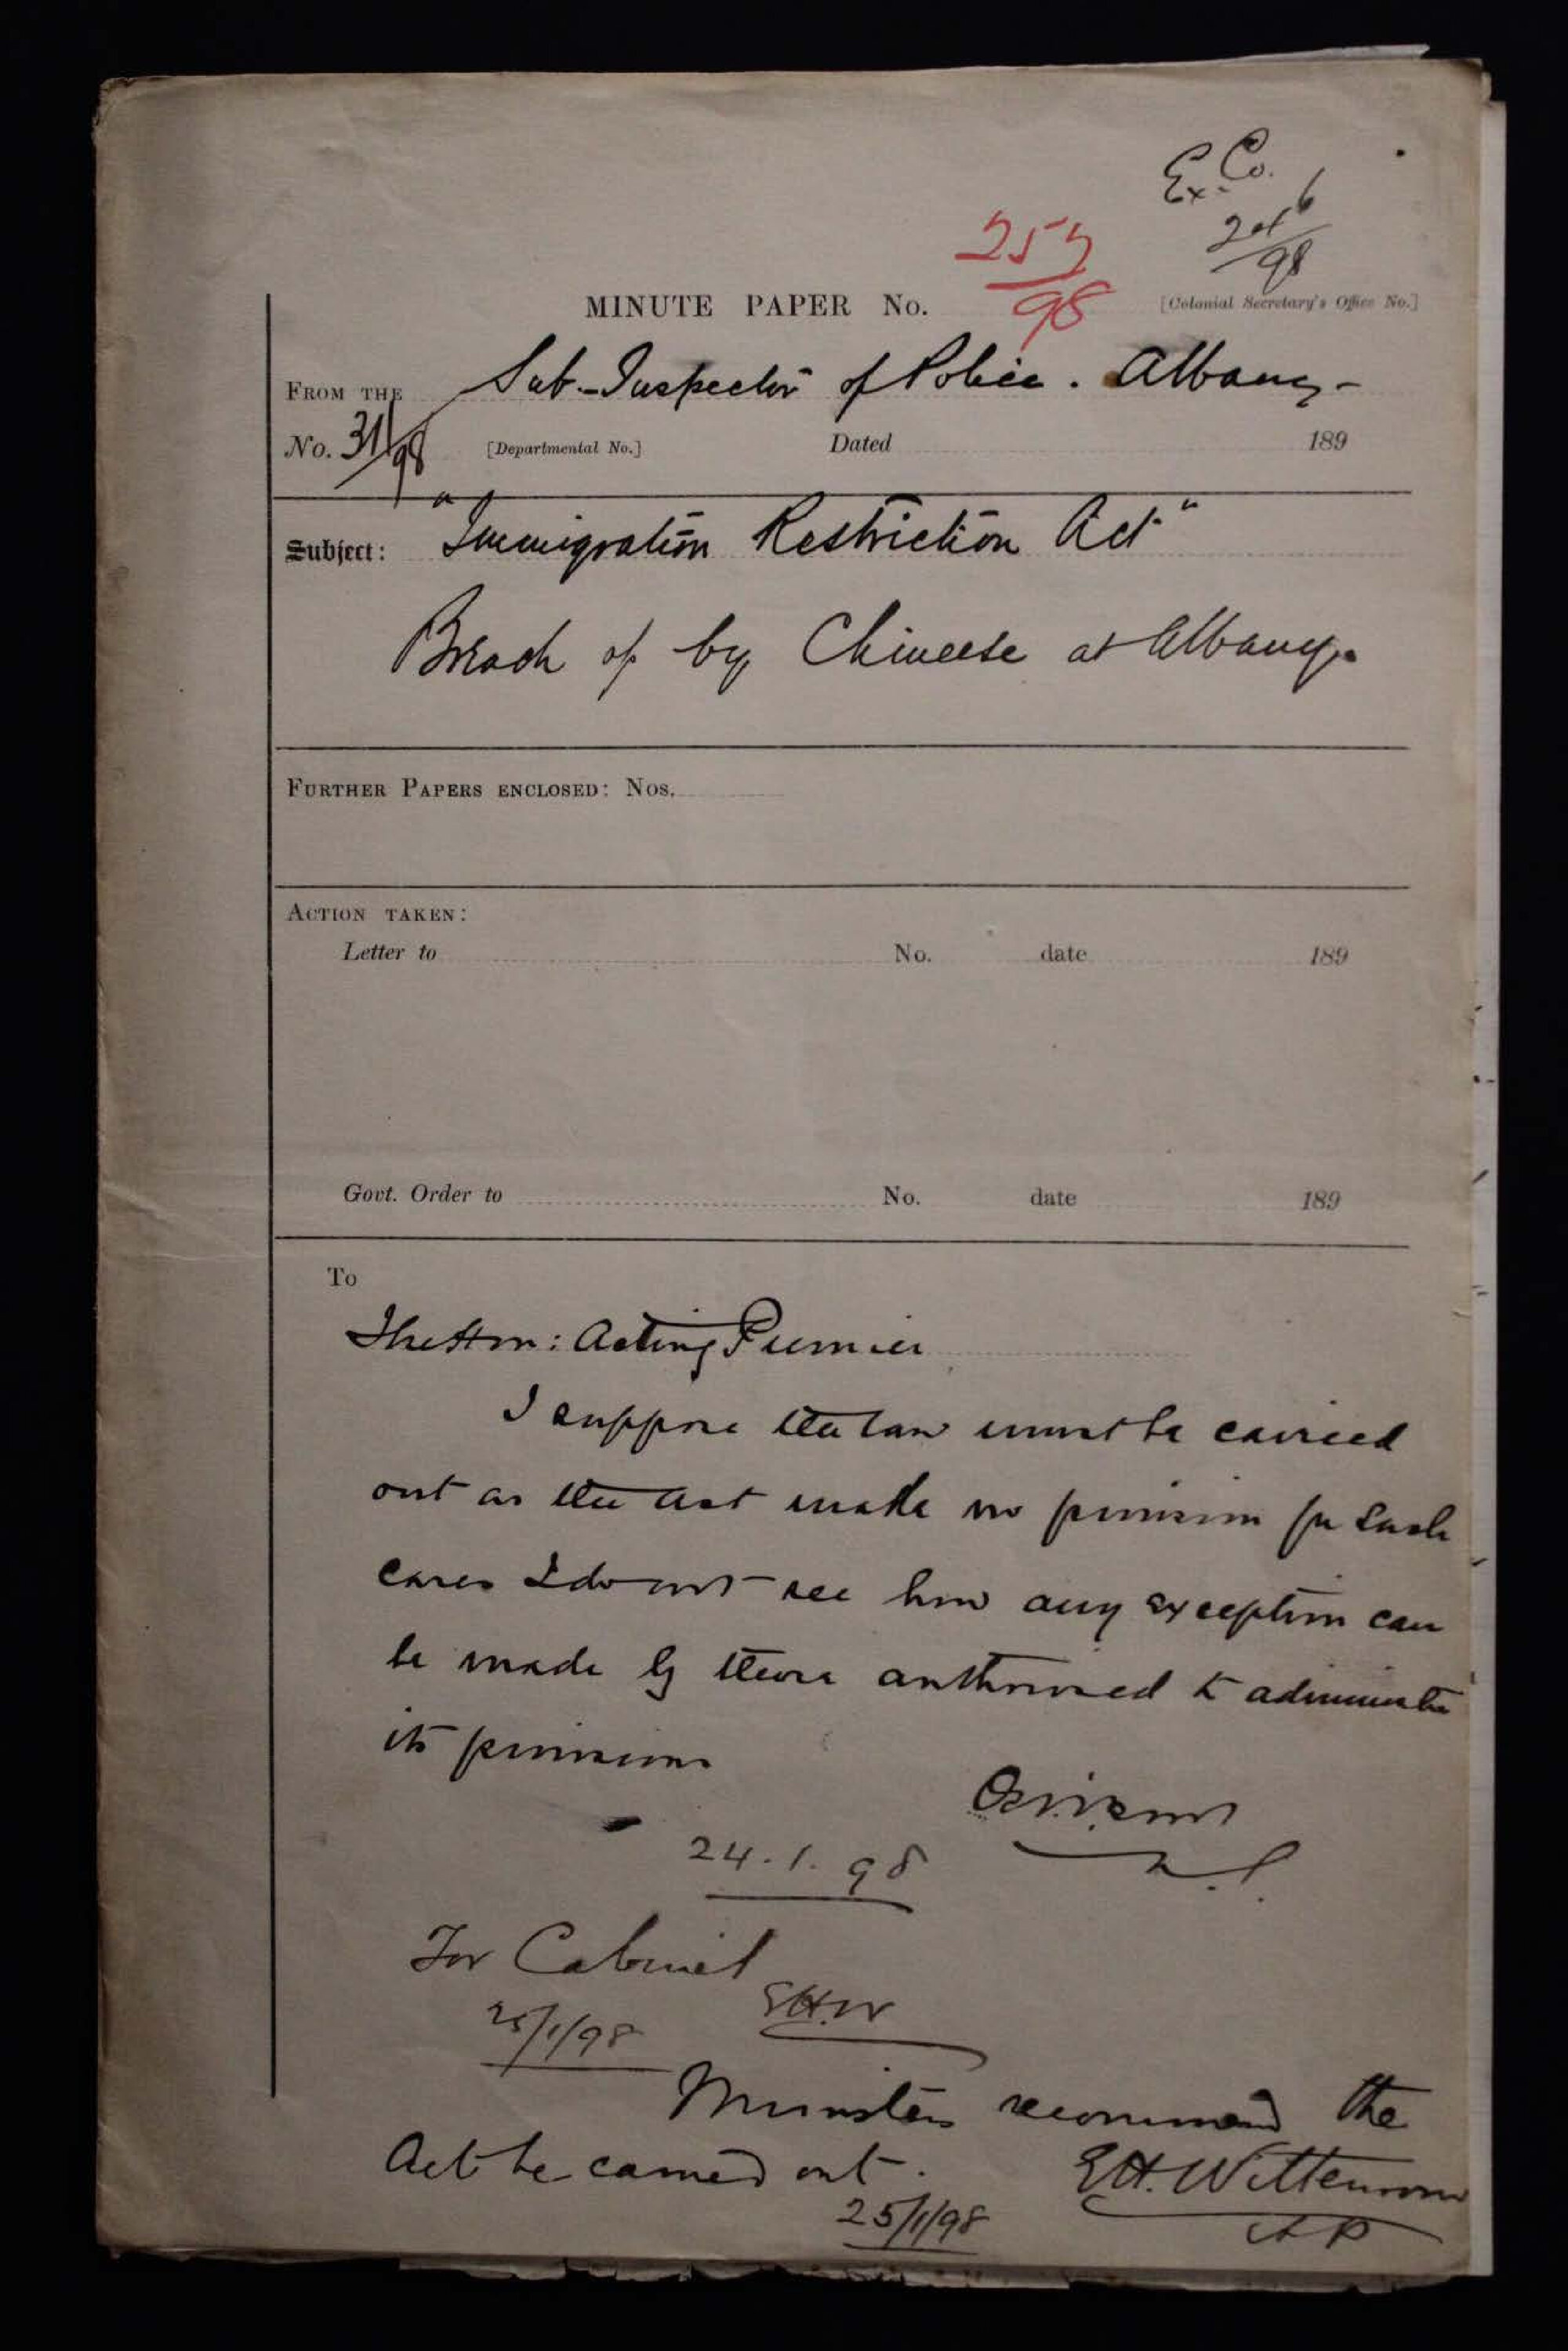 Ex. Co.
257
98
98
MINUTE PAPER No.
[Colonial Secretary's Office No.]
FROM THE Sub-Inspector of Police. Albany-
No. 31/98 [Departmental No.] Dated 189
Subject: "Immigration Restriction Act"
Breach of by Chineese at Albany.
FURTHER PAPERS ENCLOSED: NOS.
ACTION TAKEN:
Letter to No. date 189
Govt. Order to No. date 189
To
The Hon: Acting Premier
I suppose the law must be carried
out as the Act make no provision for such
cases I do not see how any exception can
be made by those authorised to administer
its provisions
24.1.98
For Cabinet
25/1/98 EHW
Ministers recommend the
Act be carried out.
EH. Wittenoom
25/1/98
AP